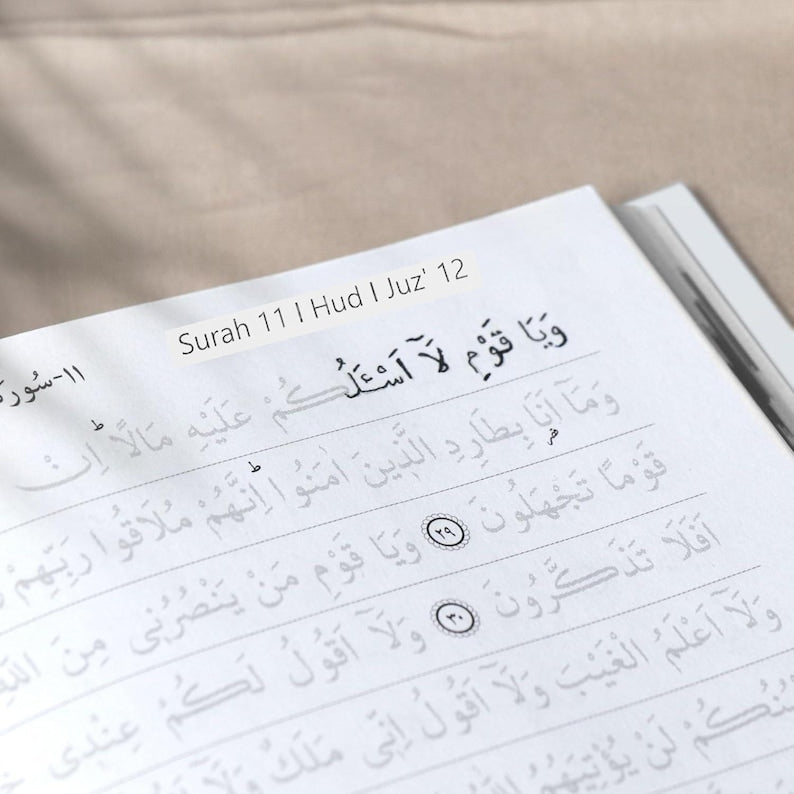 Surah 11 I Hud I Juz' 12
١١-سُورَة
وَيَا قَوْمِ لَآ اَسْـَٔلُكُمْ عَلَيْهِ مَالًا ؕ اِنْ
وَمَآ اَنَا۬ بِطَارِدِ الَّذ۪ينَ اٰمَنُوا ؕ اِنَّهُمْ مُلَاقُوا رَبِّهِمْ
قَوْمًا تَجْهَلُونَ ﴿٢٩﴾ وَيَا قَوْمِ مَنْ يَنْصُرُن۪ى مِنَ اللّٰهِ
اَفَلَا تَذَكَّرُونَ ﴿٣٠﴾ وَلَآ اَقُولُ لَكُمْ عِنْد۪ى
وَلَآ اَعْلَمُ الْغَيْبَ وَلَآ اَقُولُ اِنّ۪ى مَلَكٌ
لَنْ يُؤْتِيَهُمُ